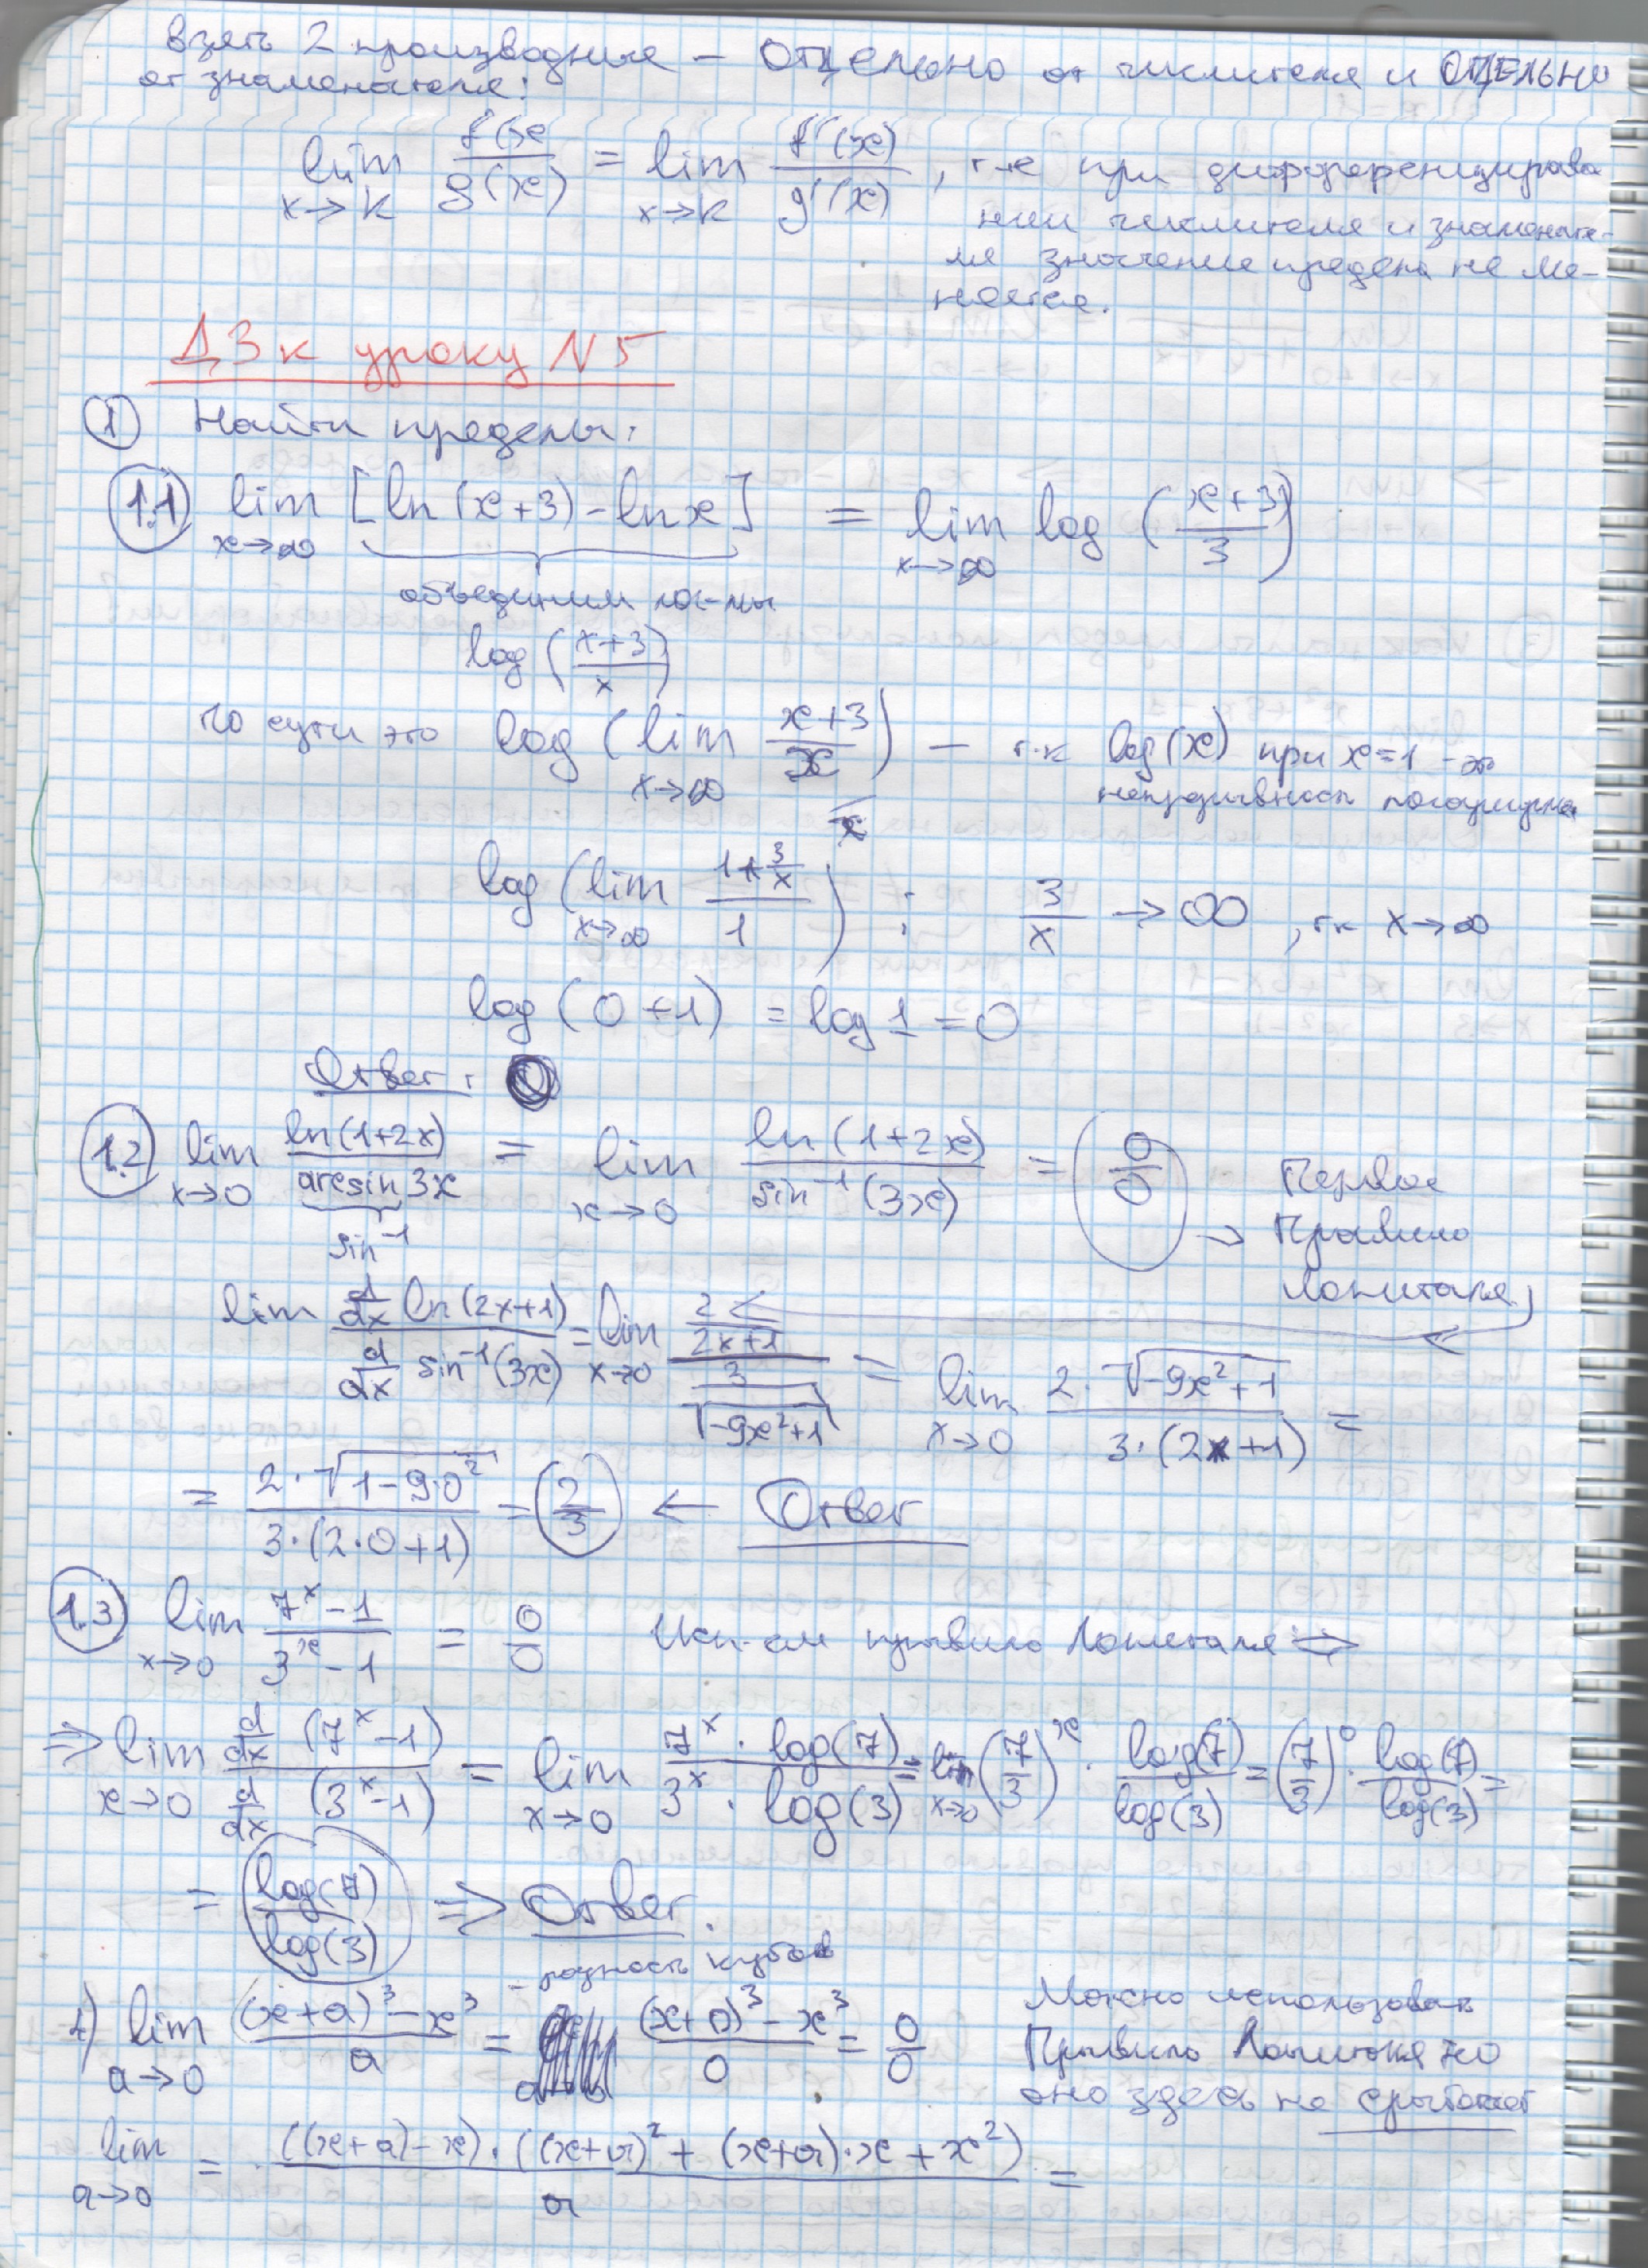 взять 2 производные – ОТДЕЛЬНО от числителя и ОТДЕЛЬНО
от знаменателя:
lim x→k f(x)/g(x) = lim x→k f'(x)/g'(x), где при дифференцирова
нии числителя и знаменате-
ля значение предела не ме-
няется.
ДЗ к уроку N5
① Найти пределы:
1.1 lim x→∞ [ln(x+3) - ln x] = lim x→∞ log ((x+3)/3)
объединим лог-мы
log ((x+3)/x)
по сути это log (lim x→∞ (x+3)/x) – т.к log(x) при x=1 - это
непрерывность логарифма
log (lim x→∞ (1+3/x)/1) : 3/x → ∞, тк x→∞
log (0+1) = log 1 = 0
Ответ: 0
1.2 lim x→0 ln(1+2x)/arcsin 3x = lim x→0 ln(1+2x)/sin⁻¹(3x) = (0/0) → Первое
Правило
Лопиталя
sin⁻¹
lim (d/dx ln(2x+1))/(d/dx sin⁻¹(3x)) = lim x→0 (2/(2x+1))/(3/√(-9x²+1)) = lim x→0 (2·√(-9x²+1))/(3·(2x+1)) =
= (2·√(1-9·0²))/(3·(2·0+1)) = (2/3) ← Ответ
1.3 lim x→0 (7ˣ-1)/(3ˣ-1) = 0/0 Исп-ем правило Лопиталя ⇒
⇒ lim x→0 (d/dx (7ˣ-1))/(d/dx (3ˣ-1)) = lim x→0 (7ˣ·log(7))/(3ˣ·log(3)) = lim x→0 (7/3)ˣ · log(7)/log(3) = (7/3)⁰ · log(7)/log(3) =
= (log(7)/log(3)) ⇒ Ответ.
- разность кубов
lim a→0 ((x+a)³-x³)/a = ((x+0)³-x³)/0 = 0/0 Можно использовать
Правило Лопиталя но
оно здесь не сработает
lim a→0 = (((x+a)-x)·((x+a)²+(x+a)·x+x²))/a =